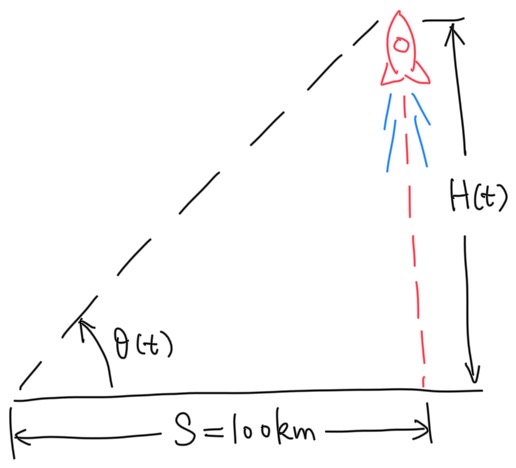 H(t)
θ(t)
S=100km